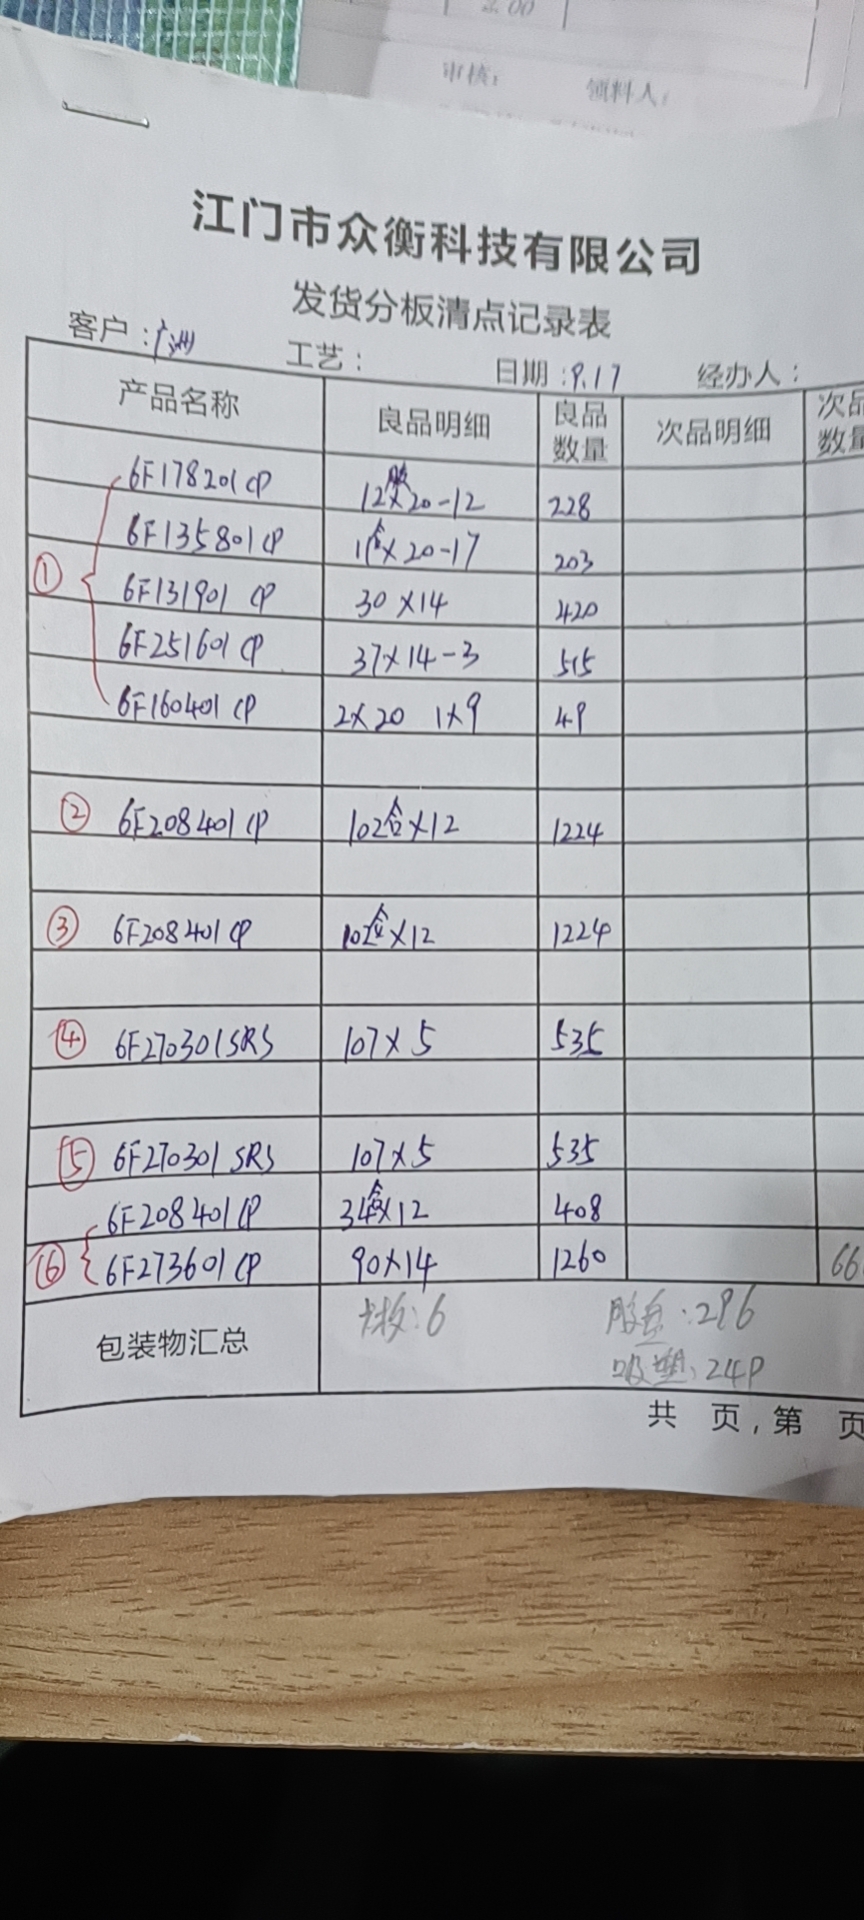 2.00
审核： 领料人：
江门市众衡科技有限公司
发货分板清点记录表
客户：广州 工艺： 日期：9.17 经办人：
产品名称 良品明细 良品数量 次品明细 次品数量
6F178201CP 12×20-12 228
6F135801CP 11盒×20-17 203
① 6F131901 CP 30×14 420
6F251601CP 37×14-3 515
6F160401CP 2×20 1×9 49
② 6F208401CP 102盒×12 1224
③ 6F208401CP 102盒×12 1224
④ 6F270301SRS 107×5 535
⑤ 6F270301SRS 107×5 535
6F208401CP 34盒×12 408
⑥ 6F273601CP 90×14 1260 66
包装物汇总 卡板：6 胶盒：296
吸塑：249
共 页，第 页